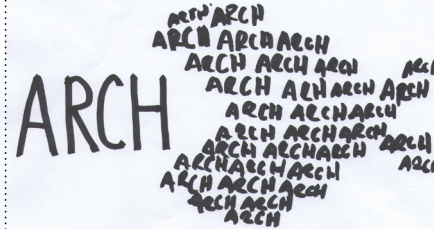 ARCH ARCH
ARCH ARCH ARCH
ARCH ARCH ARCH
ARCH ARCH ARCH ARCH
ARCH ARCH ARCH
ARCH
ARCH ARCH ARCH
ARCH ARCH ARCH ARCH
ARCH ARCH ARCH
ARCH ARCH ARCH
ARCH ARCH
ARCH